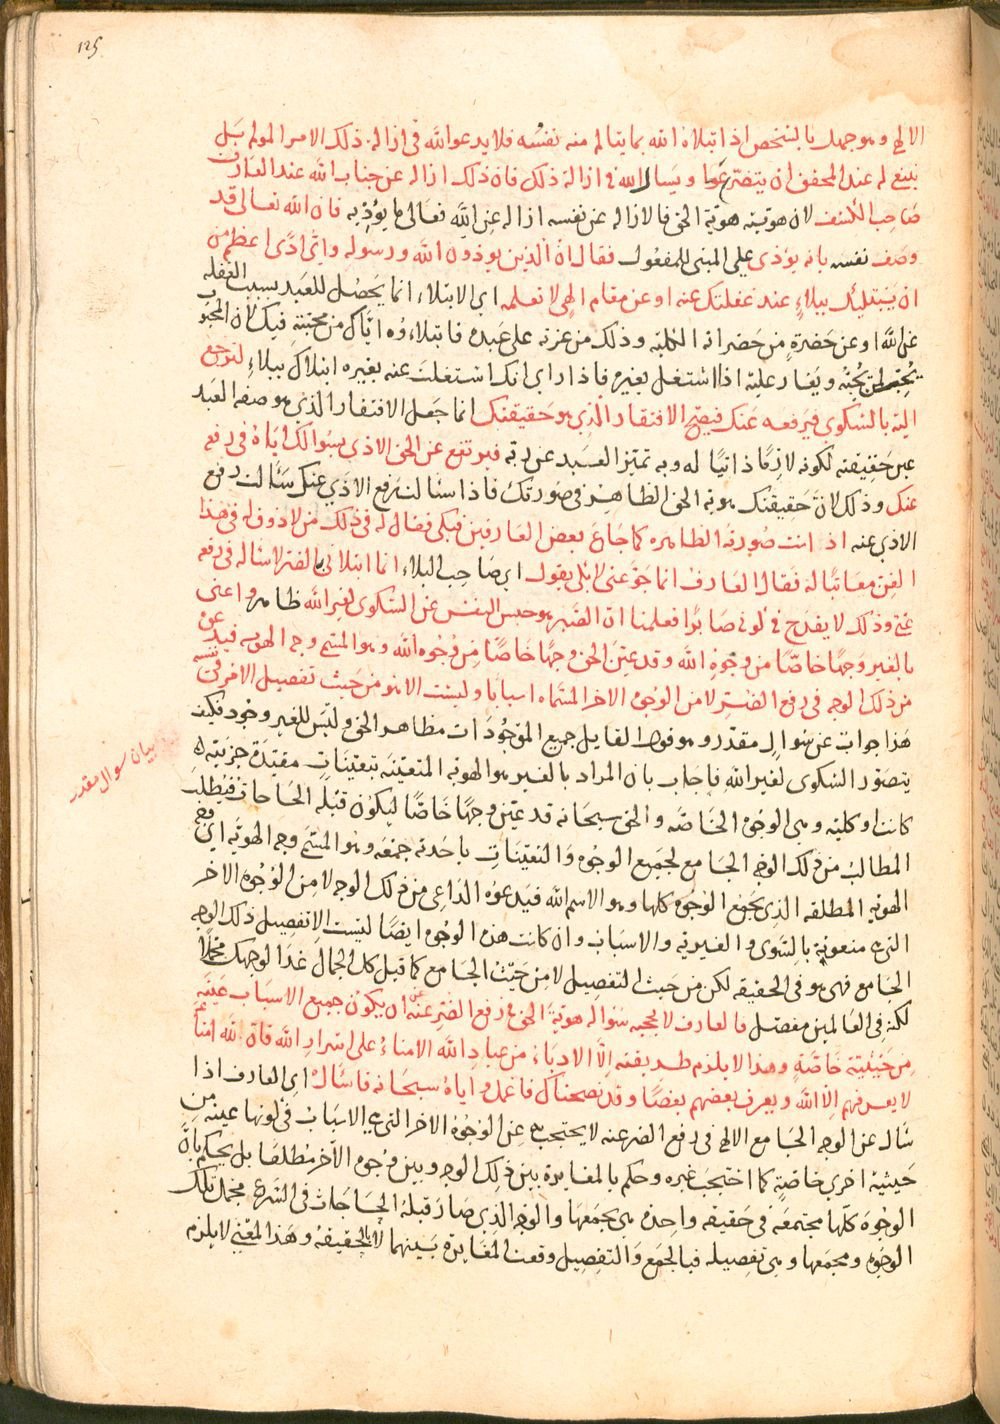 ١٢٥
الالهي وهو جهل بالشخص اذا ابتلاه الله بما يتالم منه نفسه فلا يدعو الله في ازالة ذلك الامر المولم بل
ينبغي له عند المحقق ان يتضرع ويسال الله في ازالة ذلك فان ذلك ازاله عن جناب الله عند العارف
صاحب الكشف لان هويته هوية الحق فالازاله عن نفسه ازاله عن الله تعالى ما يؤذيه فان الله تعالى قد
وصف نفسه بانه يوذى على المبنى للمفعول فقال ان الذين يوذون الله ورسوله واى اذًى اعظم من
ان يبتليك ببلاءٍ عند غفلتك عنه او عن مقام الهي لا تعلمه اى الابتلاء انما يحصل للعبد بسبب الغفله
عن الله او عن حضرةٍ من حضراته الكلية وذلك من عزته على عبده فابتلاءه اياك من محبته فيك لان المحبوب
يحب من يحبه ويغار عليه اذا اشتغل بغيره فاذا راى انك اشتغلت عنه بغيره ابتلاك ببلاءٍ لترجع
اليه بالشكوى فيرفعه عنك فيصح الافتقار الذي هو حقيقتك انما جعل الافتقار الذي هو صفه العبد
عين حقيقته لكونه لازمًا ذاتيًا له وبه تميز العبد عن ربه فيرتفع عن الحق الاذى بسوالك اياه في رفعه
عنك وذلك لان حقيقتك هوية الحق الظاهرة في صورتك فاذا سالت رفع الاذى عنك سالت رفع
الاذى عنه اذ انت صورته الظاهره كما جاع بعض العارفين فبكى فقال له في ذلك من لا ذوق له في هذا
الفن معاتبًا له فقال العارف انما جوعني لابكي يقول اى صاحب البلاء انما ابتلاني بالضر لاساله في رفعه
عني وذلك لا يقدح في كوني صابرًا فعلمنا ان الصبر هو حبس النفس عن الشكوى لغير الله ظاهر واعنى
بالغير وجهًا خاصًا من وجوه الله وقد عين الحق وجهًا خاصًا من وجوه الله وهو المسمى وجه الهويه فيدعوه
من ذلك الوجه في رفع الضر لا من الوجوه الاخر المسماه اسبابًا وليست الا هو من حيث تفصيل الامر في نفسه
هذا جواب عن سوالٍ مقدر وهو قول القايل جميع الموجودات مظاهر الحق وليس للغير وجود فكيف
يتصور الشكوى لغير الله فاجاب بان المراد بالغير هو الهويه المتعينه بتعيناتٍ مقيدة جزيته
كانت او كليته وهى الوجوه الخاصه والحق سبحانه قد عين وجهًا خاصًا ليكون قبله الحاجات فيطلب
المطالب من ذلك الوجه الجامع لجميع الوجوه والتعينات باحدية جمعه وهو المسمى وجه الهويه اى وجه
الهويه المطلقه الذي يجمع الوجوه كلها وهو الاسم الله فيدعوه الداعى من ذلك الوجه لا من الوجوه الاخر
التى هى منعوته بالسوى والغيريه والاسباب وان كانت هذه الوجوه ايضًا ليست الا تفصيل ذلك الوجه
الجامع فهى هو في الحقيقه لكن من حيث التفصيل لا من حيث الجامع كما قيل كل الجمال غدا لوجهك مجملًا
لكنه في العالمين مفصل فالعارف لا يحجبه سواله هوية الحق في رفع الضر عنه عن ان يكون جميع الاسباب عينه
من حيثية خاصةٍ وهذا لا يلزم طريقته الا الادباء من عباد الله الامناء على اسرار الله فان لله امناء
لا يعرفهم الا الله ويعرف بعضهم بعضًا وقد نصحناك فاعمل واياه سبحانه فاسال اى العارف اذا
سال عن الوجه الجامع الالهي في رفع الضر عنه لا يحتجب عن الوجوه الاخر التى هى الاسباب في كونها عينه من
حيثية اخرى خاصةٍ كما احتجب غيره وحكم بالمغايرة بين ذلك الوجه وبين وجوه الآخر مطلقًا بل يحكم بان
الوجوه كلها مجتمعه في حقيقه واحده هى يجمعها والوجه الذي صار قبلة الحاجات في الشرع مجمل تلك
الوجوه ومجمعها وهى تفصيله فبالجمع والتفصيل وقعت المغايرة بينهما لا بالحقيقه وهذا المعنى لا يلزم
بيان سوال مقدر